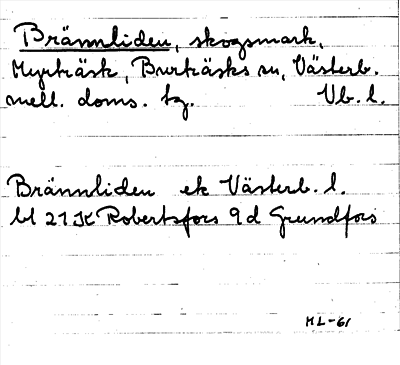 Brännliden, skogsmark,
Myrträsk, Burträsks sn, Västerb.
mell. doms. tg. Vb. l.
Brännliden ek Västerb. l.
bl 21K Robertsfors 9d Grundfors
ML-61